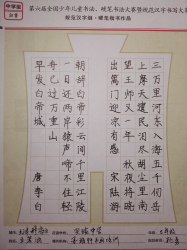 第六届全国少年儿童书法、硬笔书法大赛暨规范汉字书写大赛
规范汉字组·硬笔楷书作品
三万里河东入海五千仞岳
上摩天遗民泪尽胡尘里南
望王师又一年秋夜将晓
出篱门迎凉有感 宋陆游
朝辞白帝彩云间千里江陵
一日还两岸猿声啼不住轻
舟已过万重山
早发白帝城 唐李白